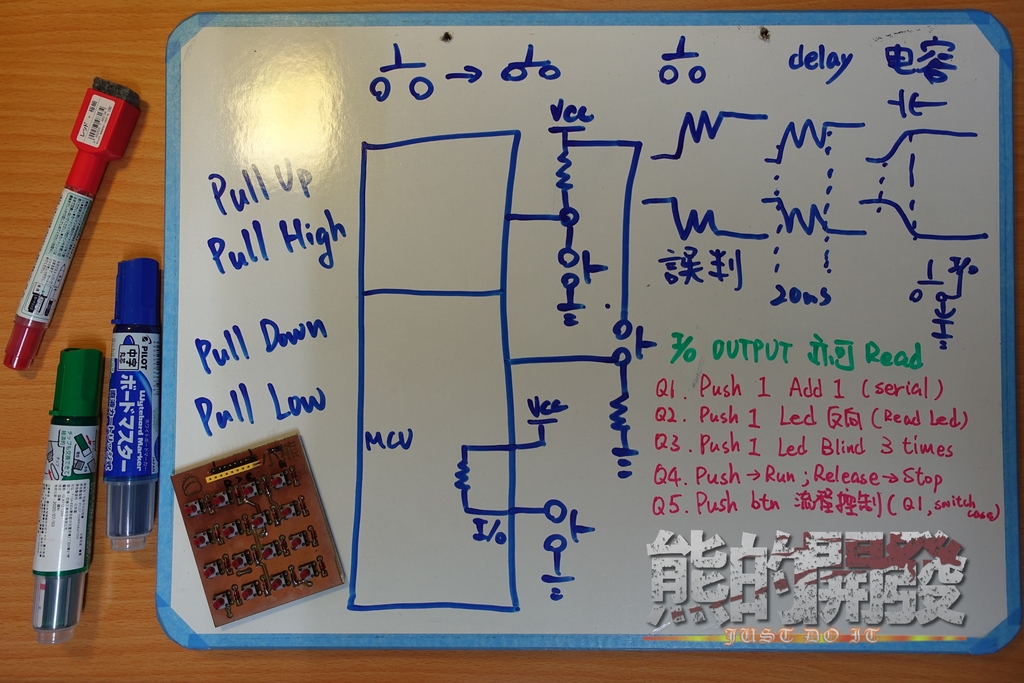 delay 电容
Vcc
Pull Up
Pull High
誤判
20ms
I/o
Pull Down
Pull Low
MCU
Vcc
I/o
I/o OUTPUT 亦可 Read
Q1. Push 1 Add 1 (serial)
Q2. Push 1 Led 反向 (Read Led)
Q3. Push 1 Led Blind 3 times
Q4. Push → Run ; Release → Stop
Q5. Push btn 流程控制 (Q1, switch case)
PILOT
中字
ボードマスター
Whyteboard Marker
熊的開發
JUST DO IT